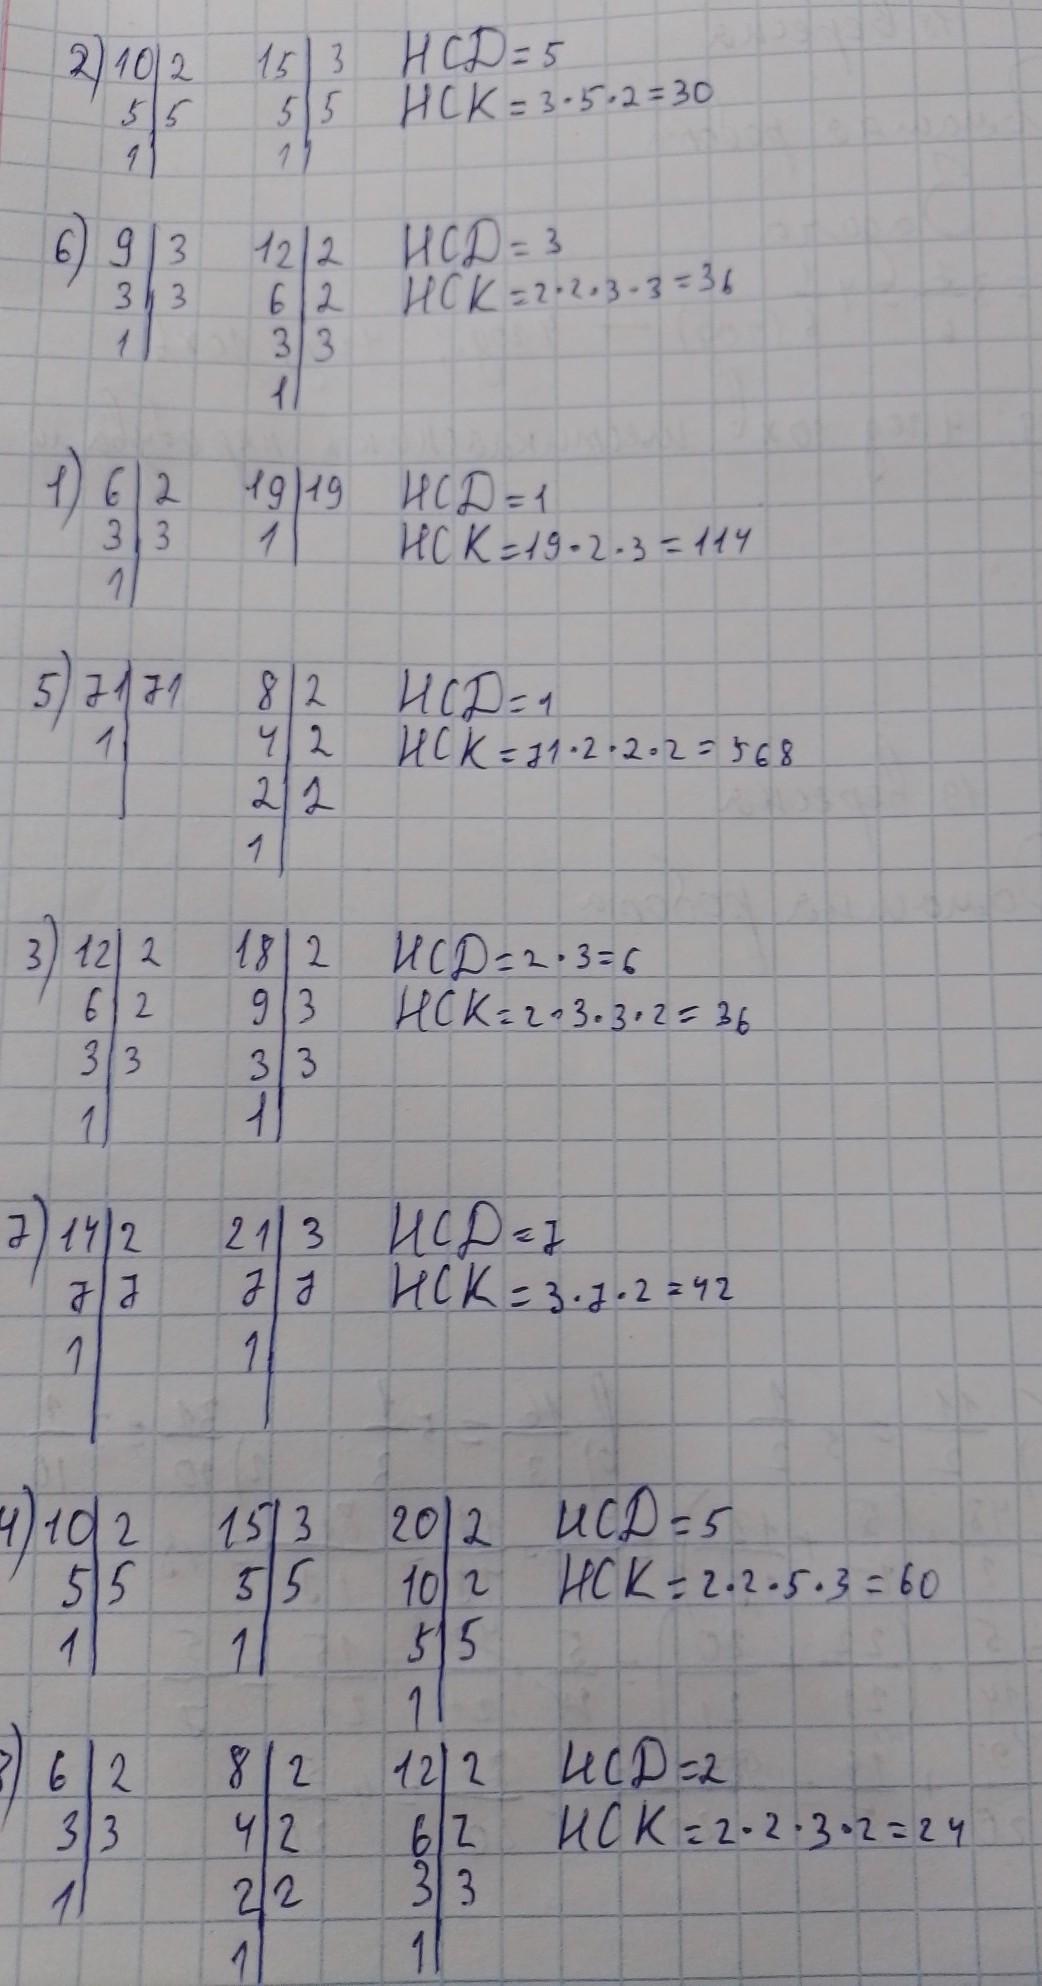 2) 10 | 2 15 | 3 НСД = 5
5 | 5 5 | 5 НСК = 3·5·2 = 30
1 | 1 |
6) 9 | 3 12 | 2 НСД = 3
3 | 3 6 | 2 НСК = 2·2·3·3 = 36
1 | 3 | 3
1 |
1) 6 | 2 19 | 19 НСД = 1
3 | 3 1 | НСК = 19·2·3 = 114
1 |
5) 71 | 71 8 | 2 НСД = 1
1 | 4 | 2 НСК = 71·2·2·2 = 568
2 | 2
1 |
3) 12 | 2 18 | 2 НСД = 2·3 = 6
6 | 2 9 | 3 НСК = 2·3·3·2 = 36
3 | 3 3 | 3
1 | 1 |
7) 14 | 2 21 | 3 НСД = 7
7 | 7 7 | 7 НСК = 3·7·2 = 42
1 | 1 |
4) 10 | 2 15 | 3 20 | 2 НСД = 5
5 | 5 5 | 5 10 | 2 НСК = 2·2·5·3 = 60
1 | 1 | 5 | 5
1 |
) 6 | 2 8 | 2 12 | 2 НСД = 2
3 | 3 4 | 2 6 | 2 НСК = 2·2·3·2 = 24
1 | 2 | 2 3 | 3
1 | 1 |